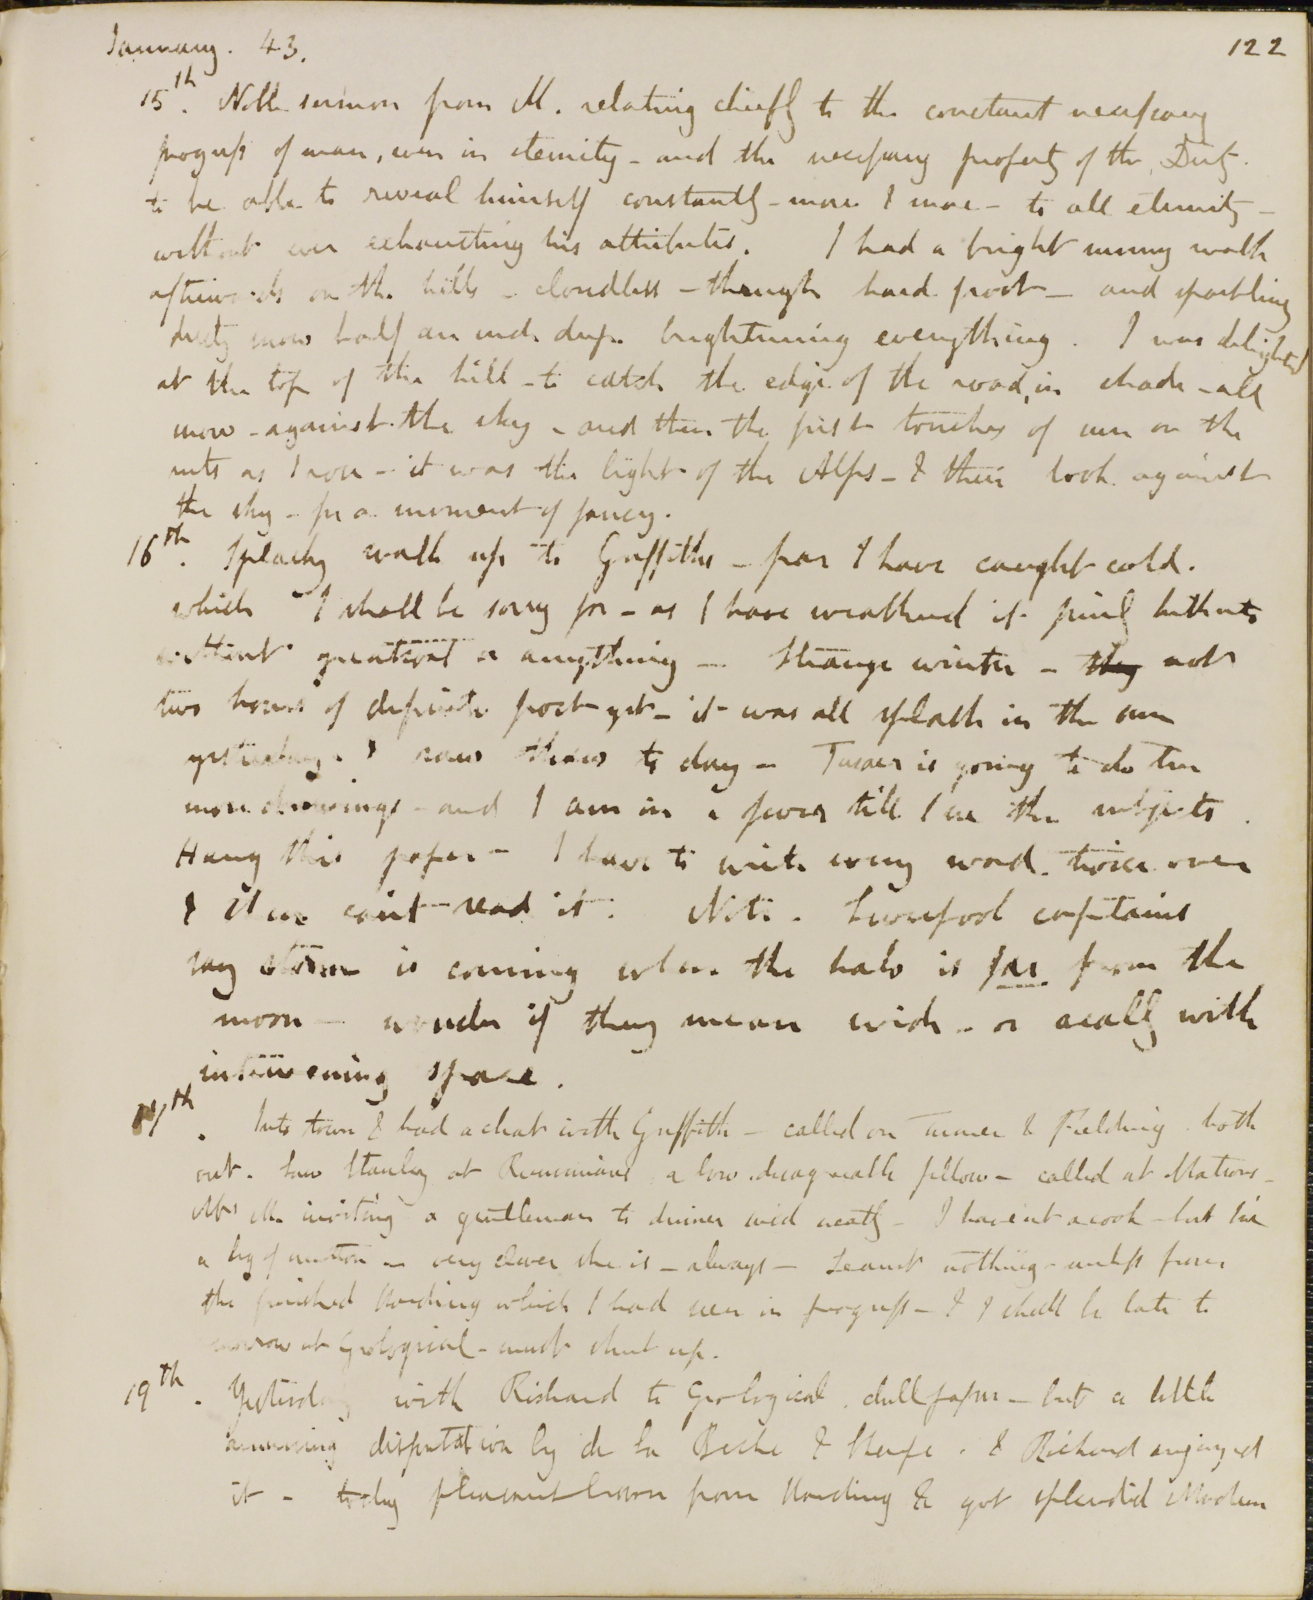 January. 43.
122
15th. Noble sermon from M. relating chiefly to the constant necessary
progress of man, even in eternity - and the necessary property of the Deity
to be able to reveal himself constantly - more & more - to all eternity -
without ever exhausting his attributes. I had a bright sunny walk
afterwards on the hills - cloudless - through hard frost - and sparkling
dusty snow half an inch deep brightening everything. I was delighted
at the top of the hill - to catch the edge of the road, in shade - all
snow - against the sky - and then the first touches of sun on the
ruts as I rose - it was the light of the Alps - & their look against
the sky - for a moment of fancy.
16th. Splashy walk up to Griffiths - fear I have caught cold.
which I shall be sorry for - as I have weathered it finely hitherto
without greatcoat or anything - Strange winter - they not
two hours of definite frost yet - it was all splash in the sun
yesterday & raw thaw to day - Turner is going to do ten
more drawings - and I am in a fever till I see the subjects.
Hang this paper - I have to write every word twice over
& then can't read it. Note. Liverpool captains
say storm is coming when the halo is far from the
moon - wonder if they mean wide - or really with
intervening space.
17th. Into town & had a chat with Griffith - called on Turner & Fielding both
out. Saw Stanley at a low disagreeable fellow - called at
Mrs M. inviting a gentleman to dinner said neatly - I haven't a cook - but I've
a leg of mutton - very clever she is - always - Learnt nothing - unless from
the finished Harding which I had seen in progress - & I shall be late to
morrow at Geological - must shut up.
19th. Yesterday with Richard to Geological. dull paper - but a little
amusing disputation by de la Beche & Sharpe. & Richard enjoyed
it - today pleasant lesson from Harding & got splendid Modern